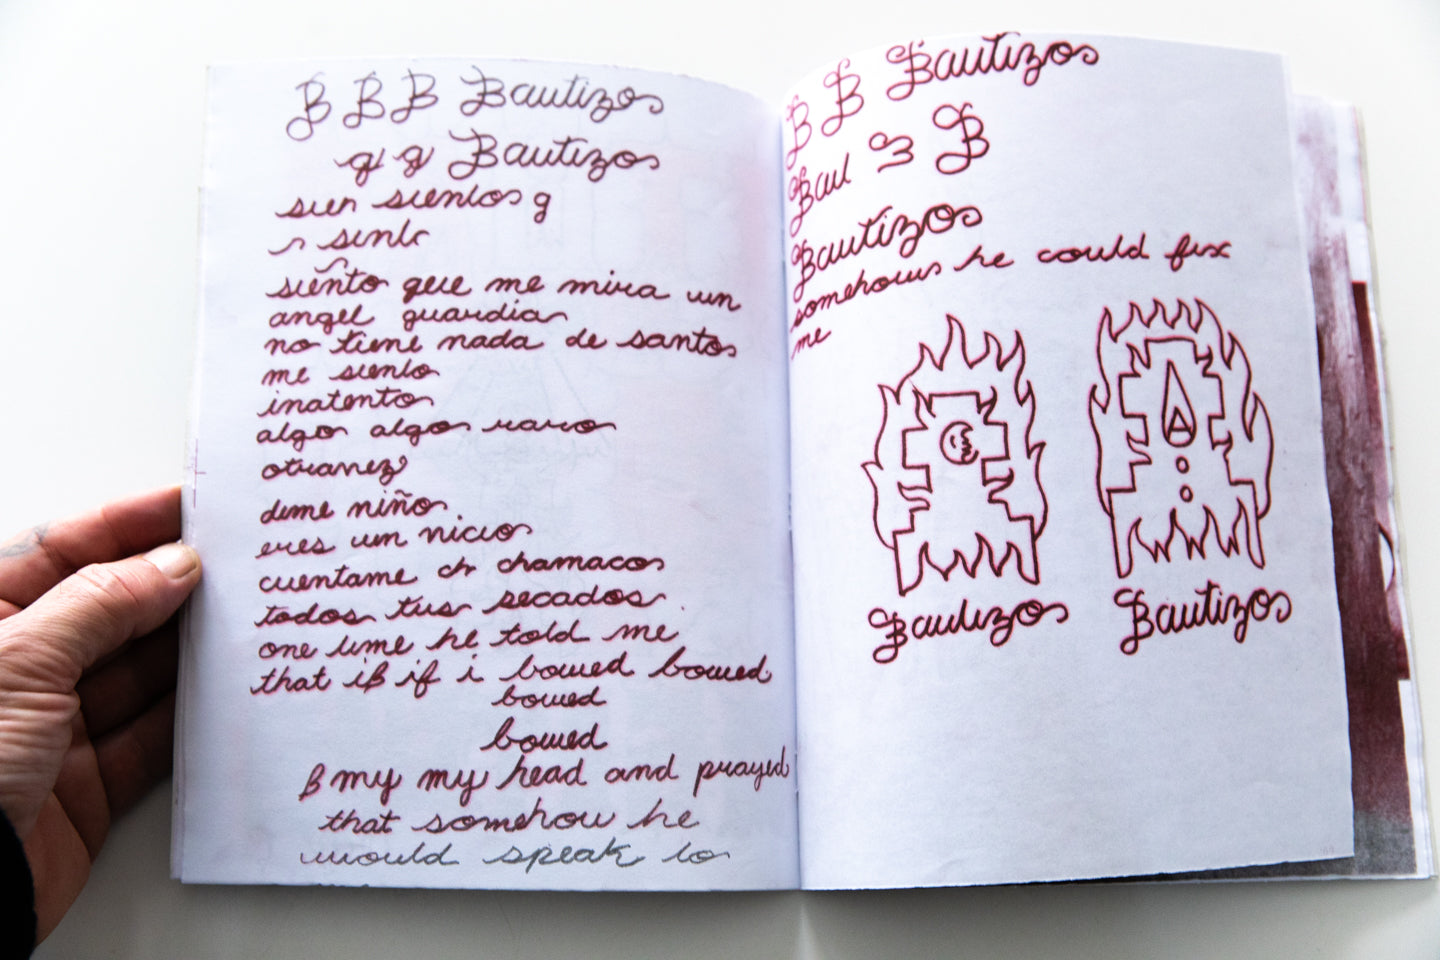 B B B Bautizos
g g Bautizos
sien siento g
n sinto
siento que me mira un
angel guardia
no tiene nada de santo
me siento
inatento
algo algo raro
otravez
dime niño
eres un nicio
cuentame ch chamaco
todos tus secados
one time he told me
that if if i bowed bowed
bowed
bowed
B my my head and prayed
that somehow he
would speak to
B B Bautizos
Baut B
Bautizos
somehow he could fix
me
Bautizos
Bautizos